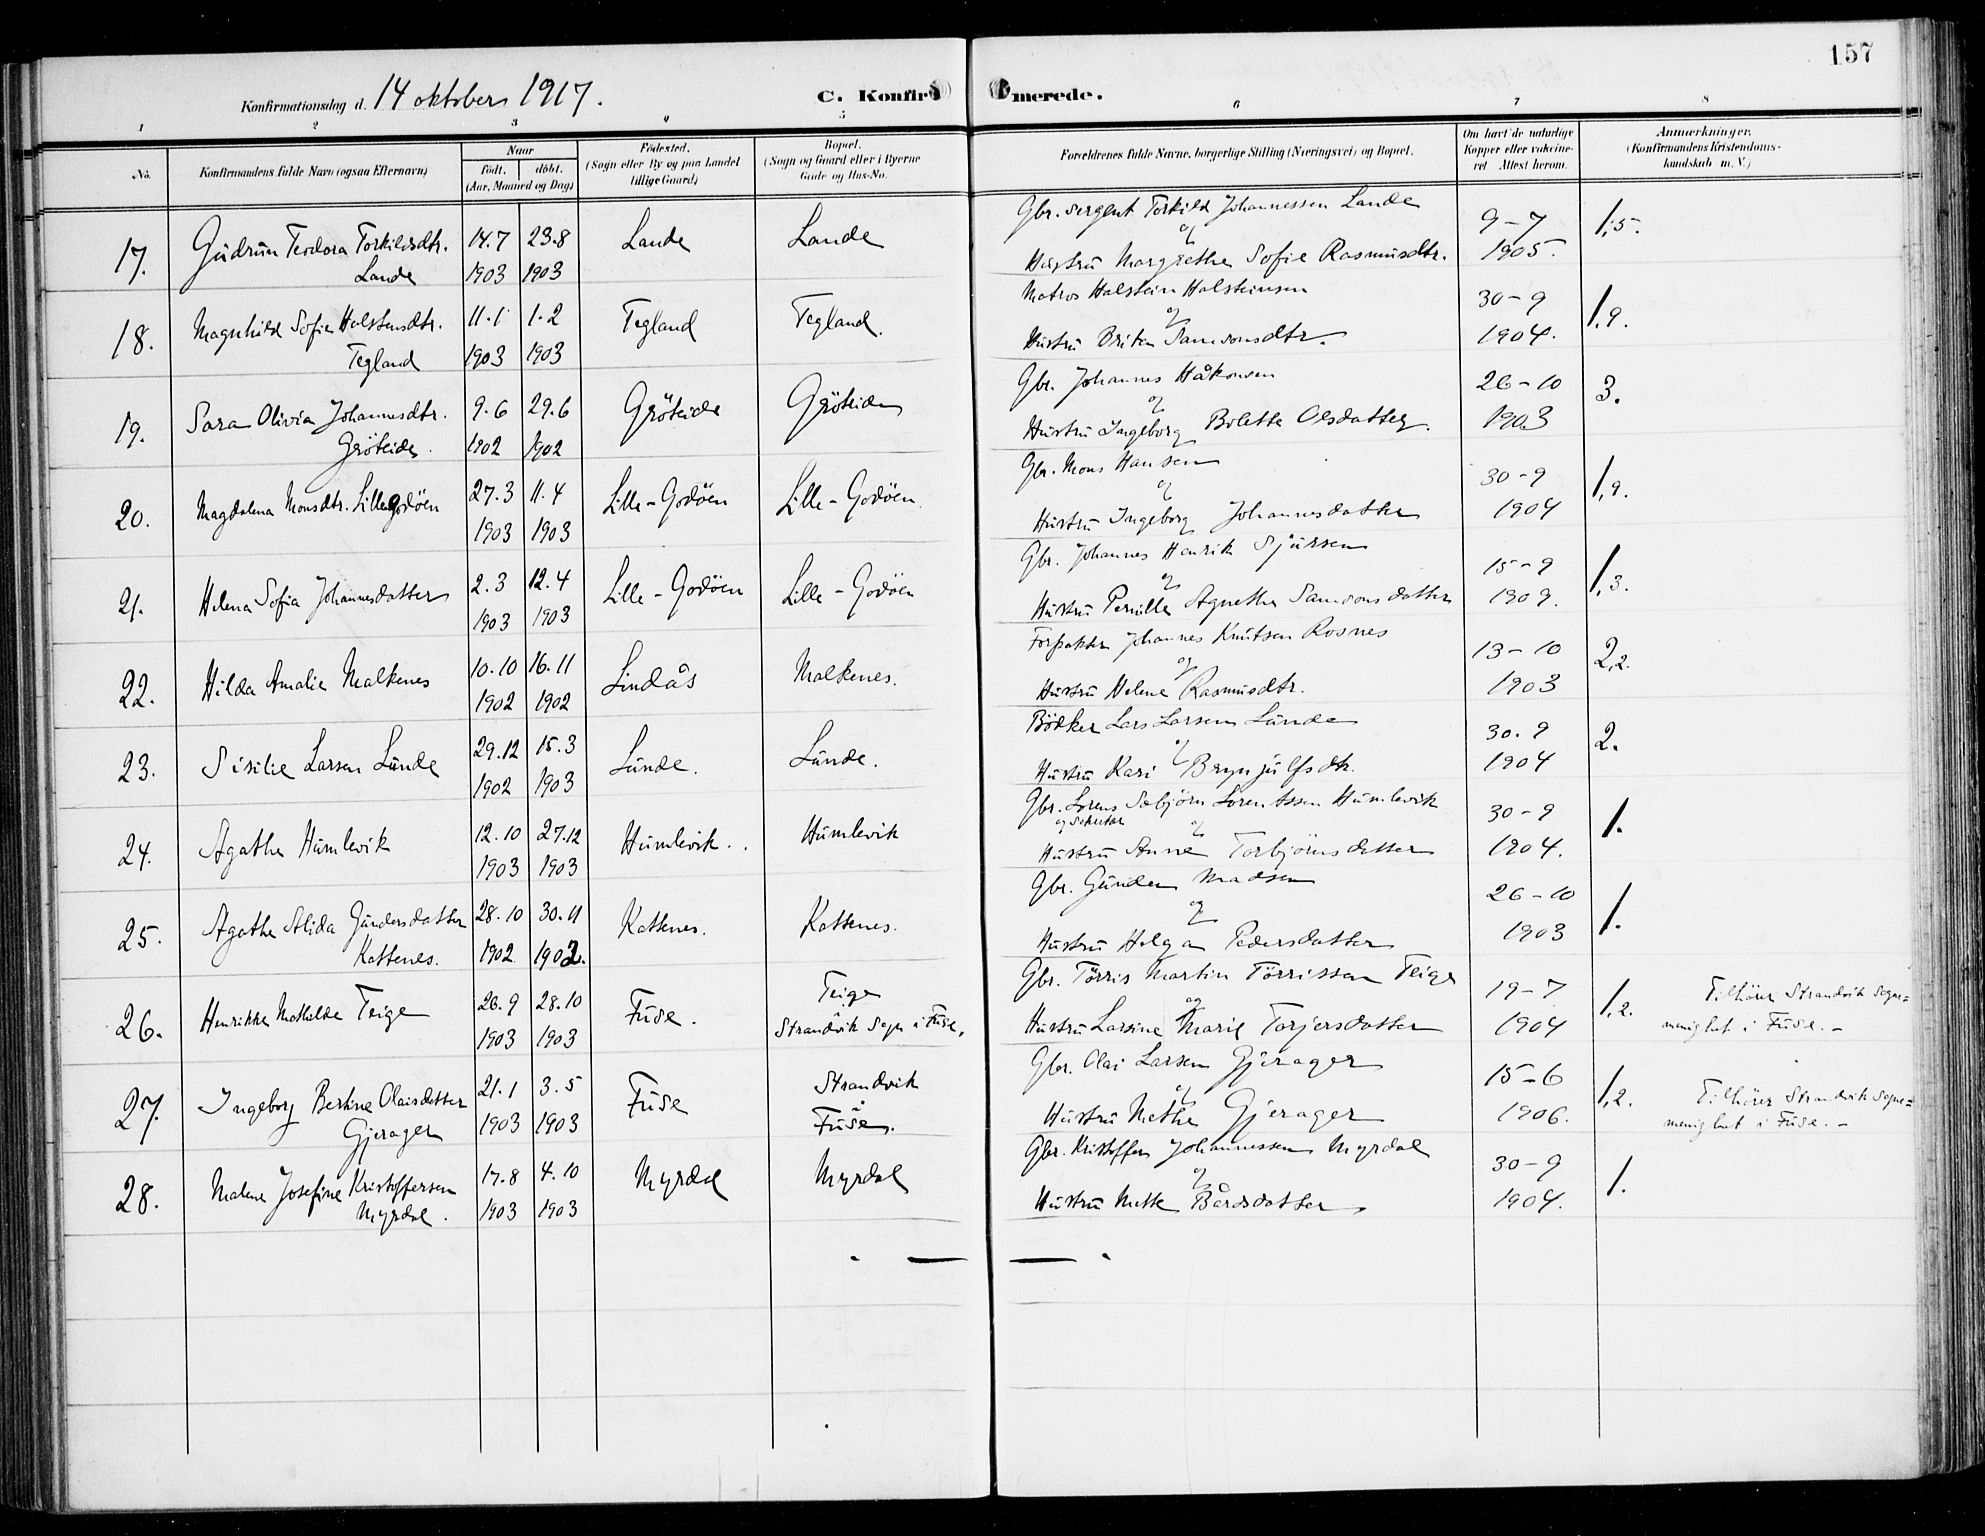 157
Konfirmationsdag d. 14 oktobers 1917.
C. Konfirmerede.
1 2 3 4 5 6 7 8
No.
Konfirmandens fulde Navn (ogsaa Efternavn)
Naar
födt. döbt.
(Aar, Maaned og Dag)
Födested.
(Sogn eller By og paa Landet
tillige Gaard)
Bopæl.
(Sogn og Gaard eller i Byerne
Gade og Hus-No.
Forældrenes fulde Navne, borgerlige Stilling (Næringsvei) og Bopæl.
Om havt de naturlige
Kopper eller vakcine-
ret Attest herom.
Anmærkninger.
(Konfirmandens Kristendoms-
kundskab m. V.)
17. Gudrun Teodora Torkildsdtr. 14.7 23.8 Lande Lande Gbr. sergent Torkild Johannessen Lande 9-7 1,5.
Lande 1903 1903 og Hustru Margrethe Sofie Rasmusdtr. 1905.
18. Magnhild Sofie Holstensdtr. 11.1 1.2 Tegland Tegland. Matros Halstein Halsteinsen 30-9 1,9.
Tegland 1903 1903 og Hustru Briten Samsonsdtr. 1904.
19. Sara Olivia Johannesdtr. 9.6 29.6 Gröteide Gröteide Gbr. Johannes Håkonsen 26-10 3.
Gröteide. 1902 1902 og Hustru Ingeborg Bolette Olsdatter. 1903
20. Magdalena Monsdtr. Lillegodöen 27.3 11.4 Lille-Godöen Lille-Godöen. Gbr. Mons Hansen 30-9 1,9.
1903 1903 og Hustru Ingeborg Johannesdatter 1904
21. Helena Sofia Johannesdatter 2.3 12.4 Lille-Godöen Lille-Godöen Gbr. Johannes Henrik Sjursen 15-9 1,3.
1903 1903 og Hustru Pernille Agnethe Samsonsdatter 1909.
22. Hilda Amalie Malkenes 10.10 16.11 Lindås Malkenes. Forpakter Johannes Knutsen Rosnes 13-10 2,2.
1902 1902 og Hustru Helene Rasmusdtr. 1903
23. Sisilie Larsen Lunde 29.12 15.3 Lunde. Lunde. Bödker Lars Larsen Lunde 30.9 2.
1902 1903 og Hustru Kari Brynjulfsdtr. 1904
24. Agathe Humlevik 12.10 27.12 Humlevik. Humlevik Gbr. Lorens Sebjörn Lorentssen Humlevik 30-9 1.
1903 1903 og Hustru Anne Torbjörnsdatter 1904.
25. Agathe Alida Gundersdatter 28.10 30.11 Kattenes. Kattenes. Gbr. Gunder Madsen 26-10 1.
Kattenes. 1902 1902. og Hustru Helga Pedersdatter 1903
26. Henrikke Mathilde Teige 26.9 28.10 Fuse. Teige Gbr. Törris Martin Törrissen Teige 19-7 1,2. Tilhörer Strandvik Sogne=
1903 1903 Strandvik Sogn i Fuse, og Hustru Larsine Marie Torjersdatter 1904 menighet i Fuse.-
27. Ingeborg Bertine Olaisdatter 21.1 3.5 Fuse Strandvik Gbr. Olai Larsen Gjerager 15-6 1,2. Tilhörer Strandvik Sogne=
Gjerager 1903 1903 i Fuse. og Hustru Methe Gjerager 1906. menighet i Fuse.-
28. Malene Josefine Kristoffersen 17.8 4.10 Myrdal Myrdal Gbr. Kristoffer Johannessen Myrdal 30-9 1.
Myrdal. 1903 1903 og Hustru Mette Bårdsdatter 1904.